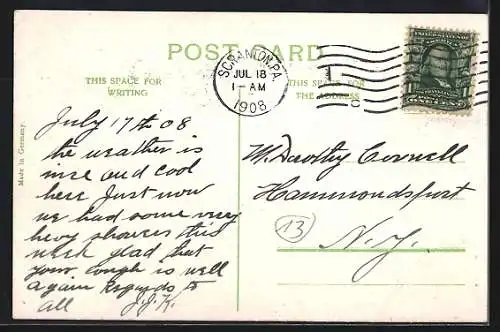 POST CARD
THIS SPACE FOR
WRITING
THIS SPACE FOR
THE ADDRESS
SCRANTON, PA.
JUL 18
1-AM
1908
Made in Germany.
July 17th 08
the weather is
nice and cool
here Just now
we had some very
hevy showers this
week glad that
your cough is well
again Regards to
all J.J.K.
M. Dorothy Cornell
Hammondsport
N.Y.
13